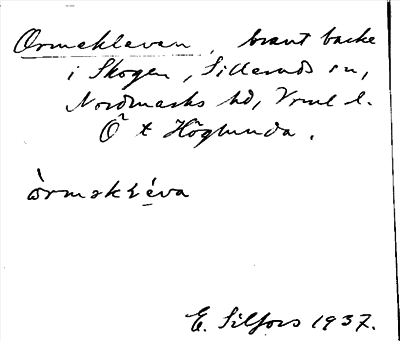 Ormekleven, brant backe
i Skogen, Silleruds sn,
Nordmarks hd, Vrml l.
Ö t Höglunda.
òrməkléva
E. Silfors 1937.